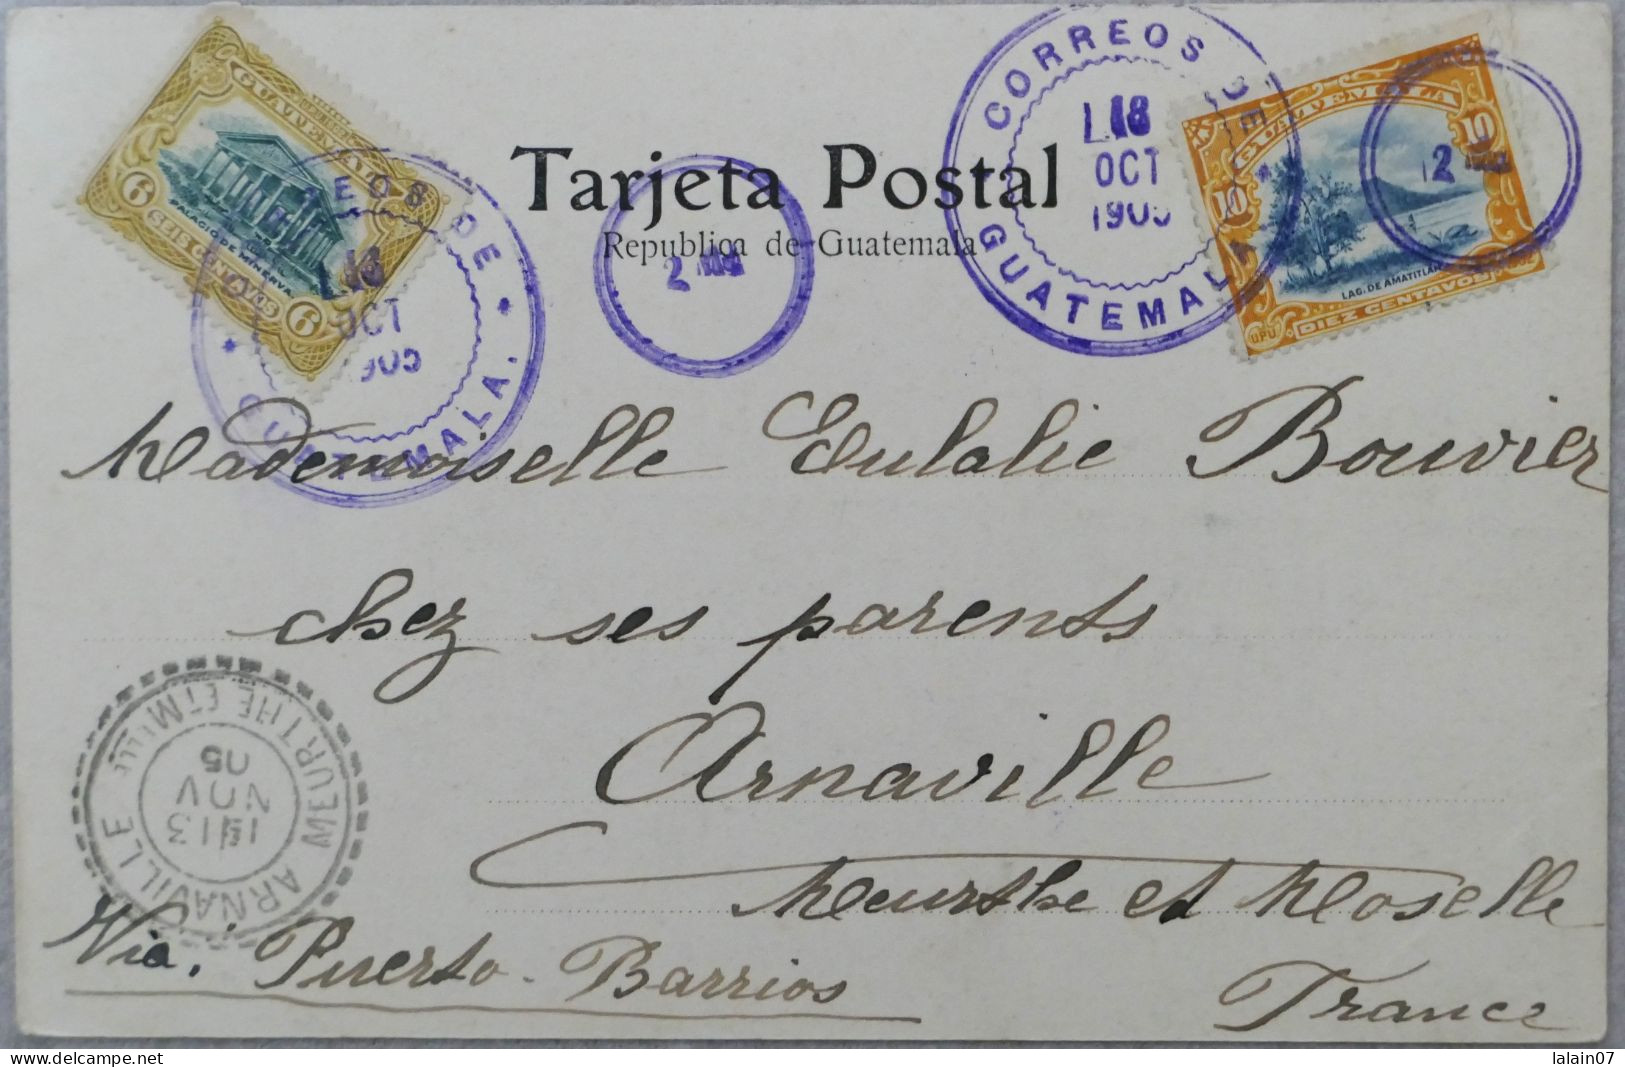 GUATEMALA
6 6
PALACIO DE MINERVA
SEIS CENTAVOS
EOS DE
OCT
905
GUATEMALA.
Tarjeta Postal
Republica de Guatemala
2
CORREOS DE
18
OCT
190
GUATEMALA
GUATEMALA
10 10
LAG. DE AMATITLAN
UPU DIEZ CENTAVOS
2
Mademoiselle Eulalie Bouvier
chez ses parents
Arnaville
Meurthe et Moselle
France
ARNAVILLE
13
NOV
05
MEURTHE ET MLLE
Via. Puerto-Barrios
lalain07